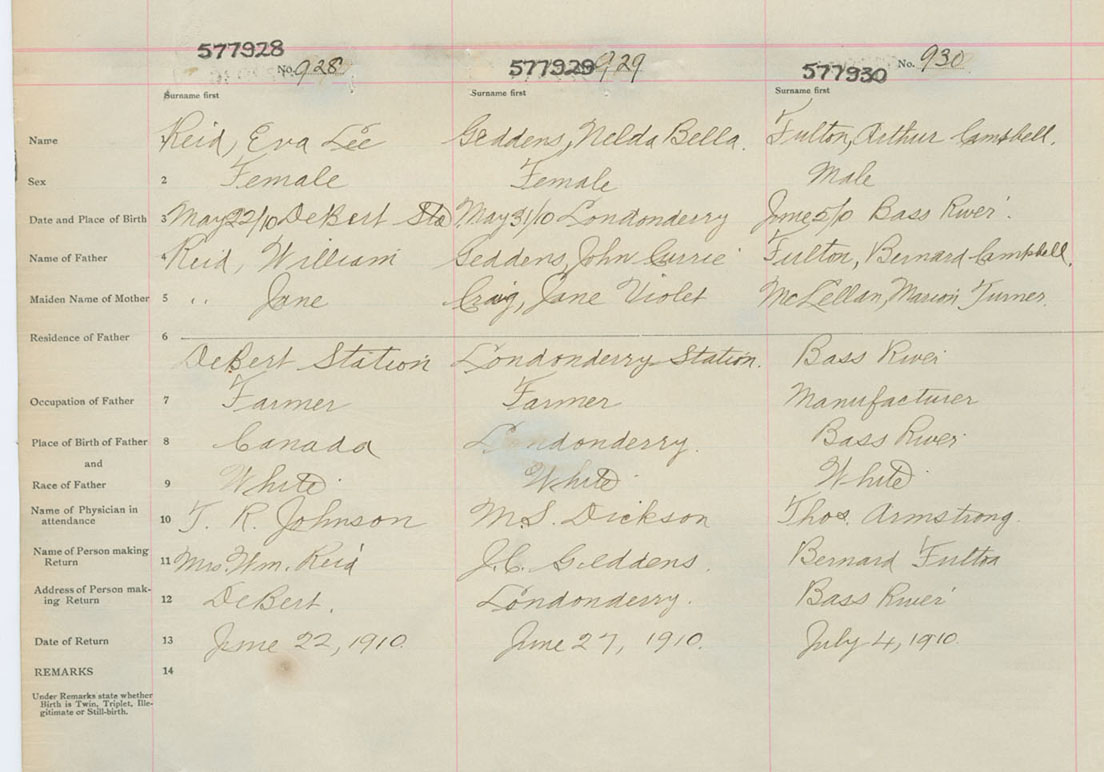 577928 577929 929 577930 No. 930
No. 928
Surname first Surname first Surname first
Name 1 Reid, Eva Lee Geddens, Nelda Bella. Fulton, Arthur Campbell.
Sex 2 Female Female Male
Date and Place of Birth 3 May 22/10 DeBert Sta May 31/10 Londonderry June 5/10 Bass River.
Name of Father 4 Reid, William Geddens, John Currie Fulton, Bernard Campbell.
Maiden Name of Mother 5 " Jane Craig, Jane Violet McLellan, Marion Turner.
Residence of Father 6
DeBert Station Londonderry Station. Bass River
Occupation of Father 7 Farmer Farmer Manufacturer
Place of Birth of Father 8 Canada Londonderry. Bass River
and
Race of Father 9 White White White
Name of Physician in
attendance 10 T. R. Johnson M.S. Dickson Thos. Armstrong.
Name of Person making
Return 11 Mrs. Wm. Reid J.C. Gelddens. Bernard Fulton
Address of Person mak-
ing Return 12 DeBert. Londonderry. Bass River
Date of Return 13 June 22, 1910. June 27, 1910. July 4, 1910.
REMARKS 14
Under Remarks state whether
Birth is Twin, Triplet, Ille-
gitimate or Still-birth.